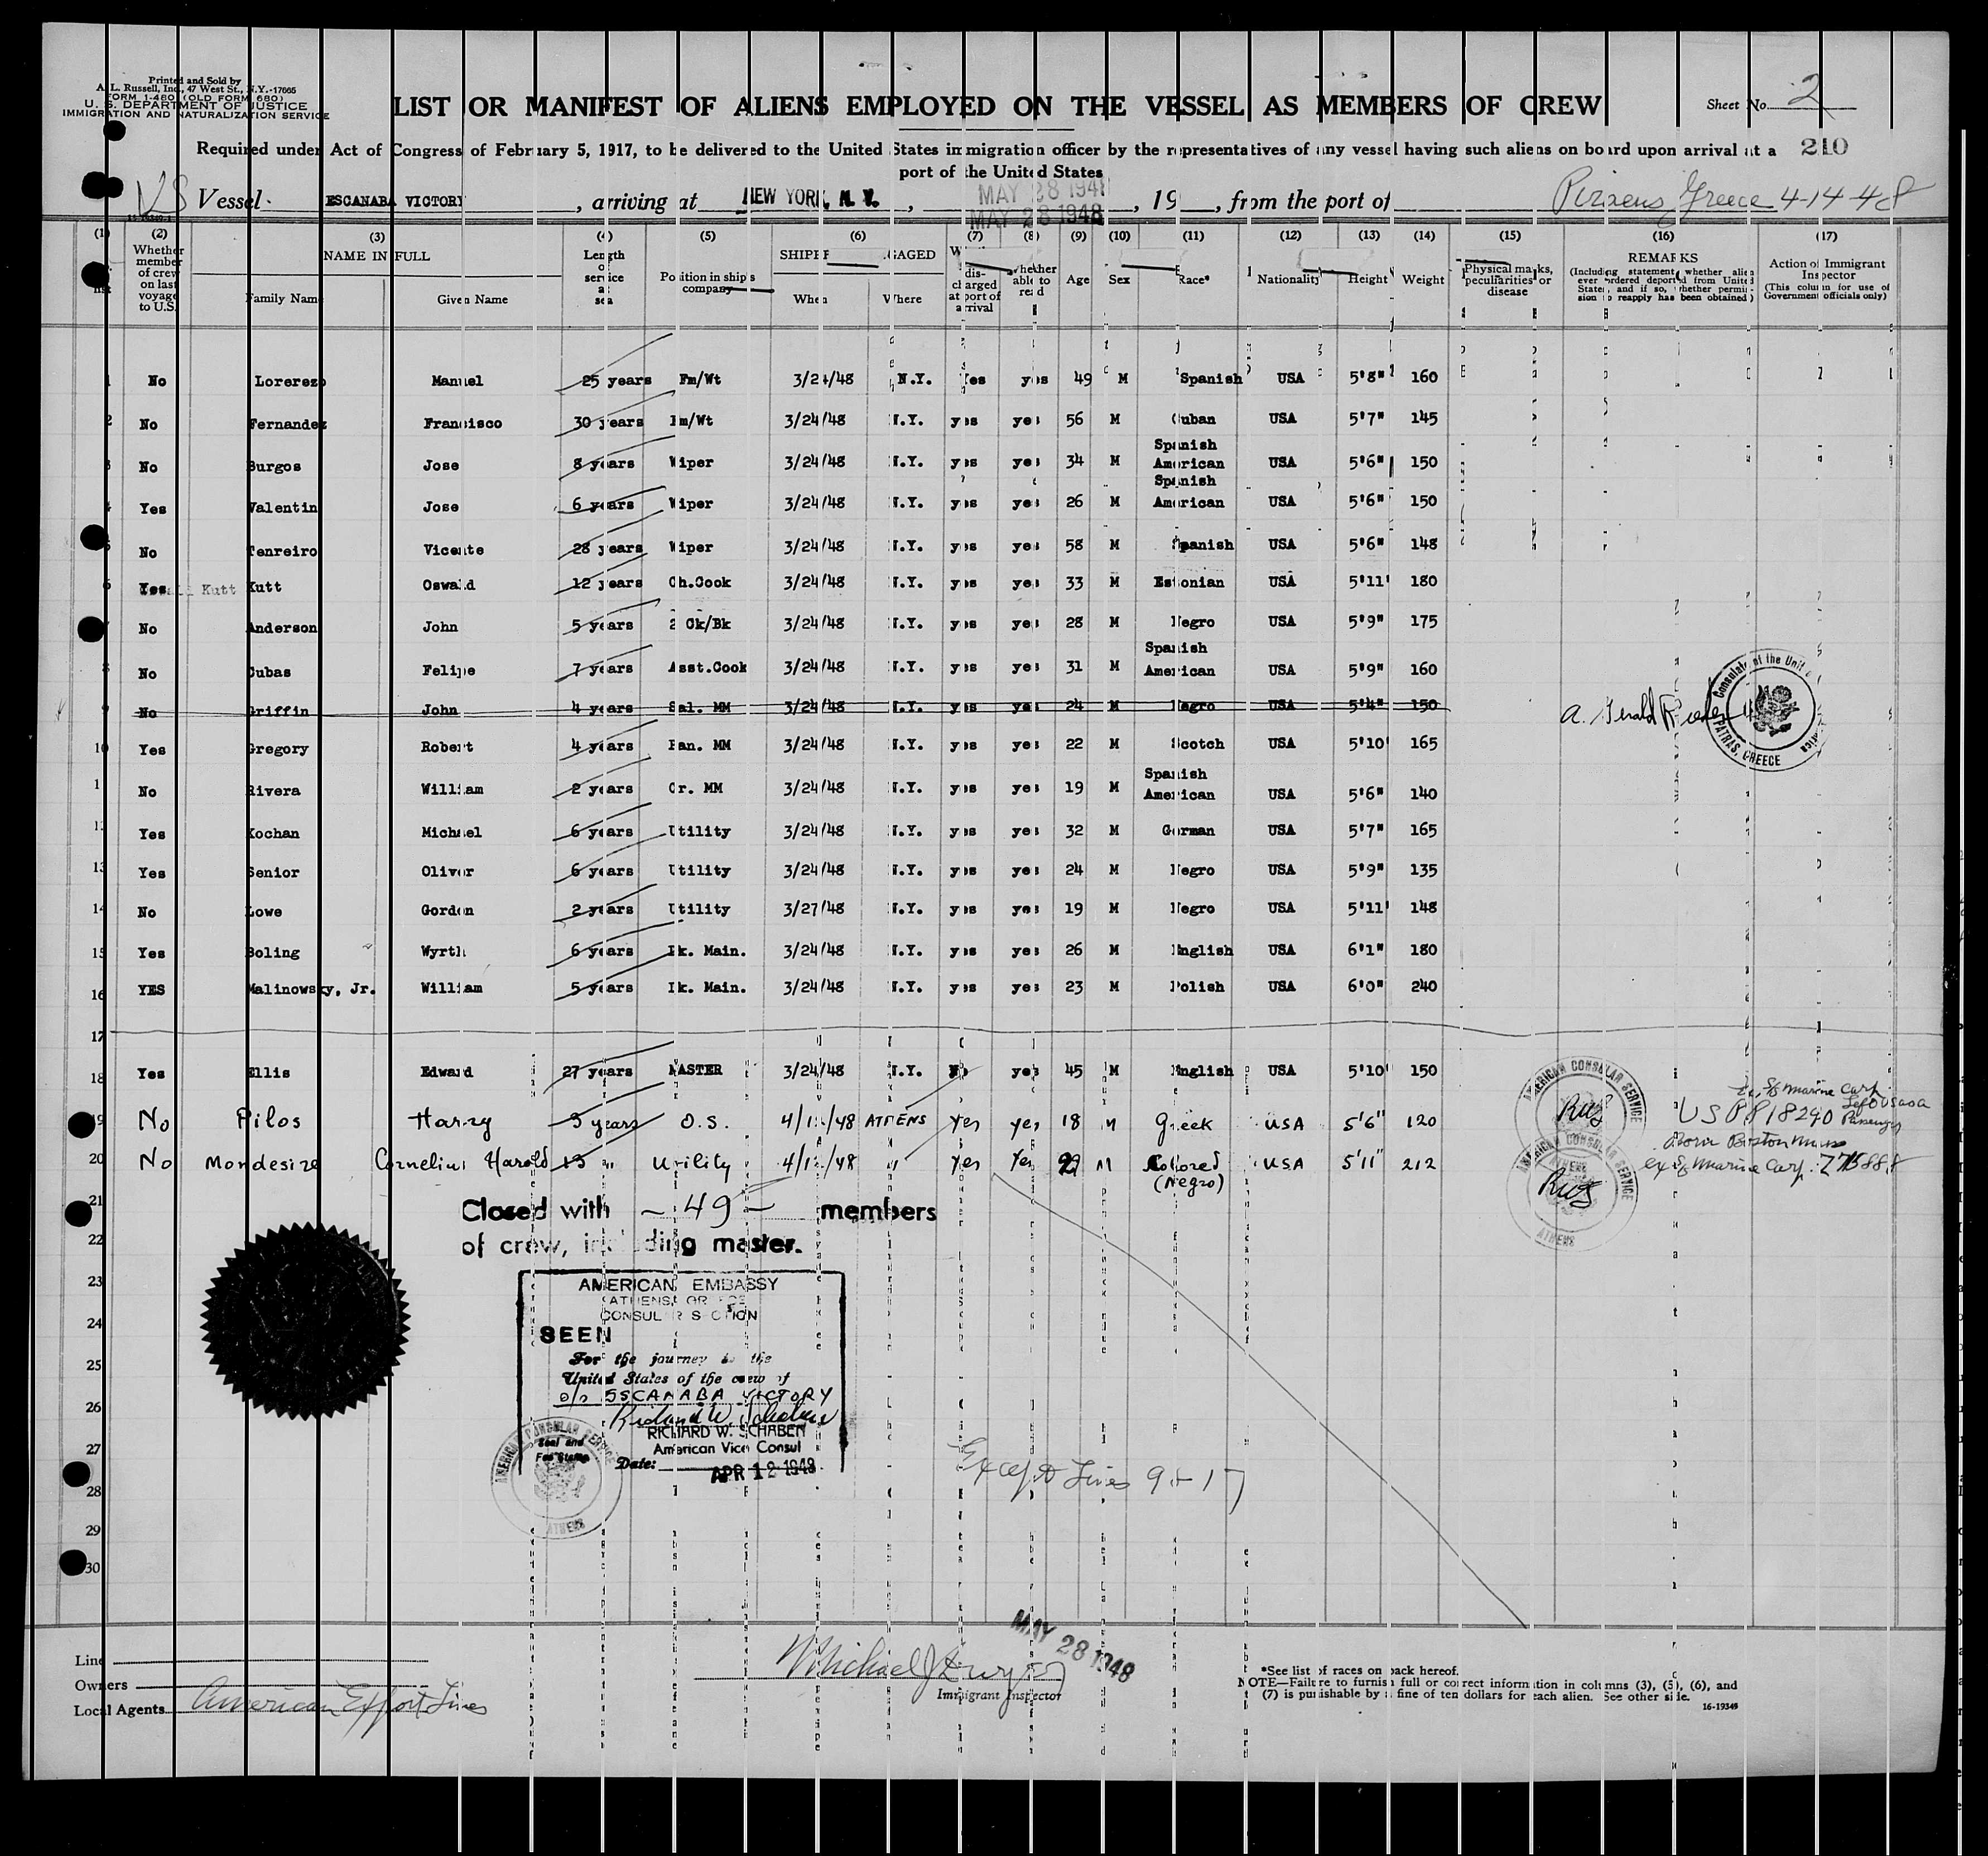 Printed and Sold by
A. L. Russell, Inc., 47 West St., N.Y.-17665
FORM 1-480 (OLD FORM 680)
U. S. DEPARTMENT OF JUSTICE
IMMIGRATION AND NATURALIZATION SERVICE
LIST OR MANIFEST OF ALIENS EMPLOYED ON THE VESSEL AS MEMBERS OF CREW
Sheet No. 2
210
Required under Act of Congress of February 5, 1917, to be delivered to the United States immigration officer by the representatives of any vessel having such aliens on board upon arrival at a
port of the United States
Vessel ESCANABA VICTORY, arriving at NEW YORK, N. Y., MAY 28 1948, 19, from the port of Piraeus Greece 4-14-48
MAY 28 1948
(1) (2) (3) (4) (5) (6) (7) (8) (9) (10) (11) (12) (13) (14) (15) (16) (17)
Whether member of crew on last voyage to U.S.
NAME IN FULL
Family Name Given Name
Length of service at sea
Position in ship's company
SHIPPED OR ENGAGED
When Where
Whether to be discharged at port of arrival
Whether able to read
Age Sex Race* Nationality Height Weight
Physical marks, peculiarities or disease
REMARKS
(Including statement whether alien ever ordered deported from United States, and if so, whether permission to reapply has been obtained)
Action of Immigrant Inspector
(This column for use of Government officials only)
1 No Lorerezo Manuel 25 years Fm/Wt 3/24/48 N.Y. Yes yes 49 M Spanish USA 5'8" 160
2 No Fernandez Francisco 30 years Fm/Wt 3/24/48 N.Y. yes yes 56 M Cuban USA 5'7" 145
3 No Burgos Jose 8 years Wiper 3/24/48 N.Y. yes yes 34 M Spanish American USA 5'6" 150
4 Yes Valentin Jose 6 years Wiper 3/24/48 N.Y. yes yes 26 M Spanish American USA 5'6" 150
5 No Tenreiro Vicente 28 years Wiper 3/24/48 N.Y. yes yes 58 M Spanish USA 5'6" 148
6 Yes Kutt Kutt Oswald 12 years Ch.Cook 3/24/48 N.Y. yes yes 33 M Estonian USA 5'11" 180
7 No Anderson John 5 years 2 Ck/Bk 3/24/48 N.Y. yes yes 28 M Negro USA 5'9" 175
8 No Cubas Felipe 7 years Asst.Cook 3/24/48 N.Y. yes yes 31 M Spanish American USA 5'9" 160
9 No Griffin John 4 years Sal. MM 3/24/48 N.Y. yes yes 24 M Negro USA 5'4" 150
Consulate of the United States
PATRAS, GREECE
10 Yes Gregory Robert 4 years Pan. MM 3/24/48 N.Y. yes yes 22 M Scotch USA 5'10" 165
11 No Rivera William 2 years Cr. MM 3/24/48 N.Y. yes yes 19 M Spanish American USA 5'6" 140
12 Yes Kochan Michael 6 years Utility 3/24/48 N.Y. yes yes 32 M German USA 5'7" 165
13 Yes Senior Oliver 6 years Utility 3/24/48 N.Y. yes yes 24 M Negro USA 5'9" 135
14 No Lowe Gordon 2 years Utility 3/27/48 N.Y. yes yes 19 M Negro USA 5'11" 148
15 Yes Boling Wyrth 6 years Dk. Main. 3/24/48 N.Y. yes yes 26 M English USA 6'1" 180
16 YES Malinowsky, Jr. William 5 years Dk. Main. 3/24/48 N.Y. yes yes 23 M Polish USA 6'0" 240
17
18 Yes Ellis Edward 27 years MASTER 3/24/48 N.Y. No yes 45 M English USA 5'10" 150
19 No Pilos Harry 3 years O.S. 4/12/48 ATHENS Yes yes 18 M Greek USA 5'6" 120
USPP18290 Passenger
Born Boston Mass
20 No Mondesire Cornelius Harold 13 " Utility 4/12/48 " Yes Yes 29 M Colored (Negro) USA 5'11" 212
AMERICAN CONSULAR SERVICE
AMERICAN CONSULAR SERVICE
ATHENS
21
Closed with - 49 - members
of crew, including master.
22
23
24
25
26
27
28
29
30
AMERICAN EMBASSY
ATHENS, GREECE
CONSULAR SECTION
SEEN
For the journey to the
United States of the crew of
s/s ESCANABA VICTORY
RICHARD W. SCHABEN
American Vice Consul
Seal and
Fee Stamp
Date: APR 12 1948
AMERICAN CONSULAR SERVICE
ATHENS
Except Lines 9 + 17
Line
Owners
Local Agents American Export Lines
Michael J Dwyer
Immigrant Inspector
MAY 28 1948
*See list of races on back hereof.
NOTE—Failure to furnish full or correct information in columns (3), (5), (6), and
(7) is punishable by a fine of ten dollars for each alien. See other side.
16-19349